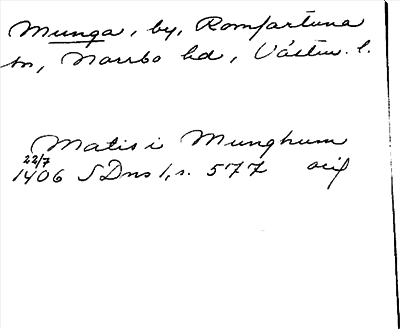 Munga, by, Romfartuna
sn, Norrbo hd, Västm. l.
Matis i Munghum
22/7
1406 SDns 1, s. 577 orig